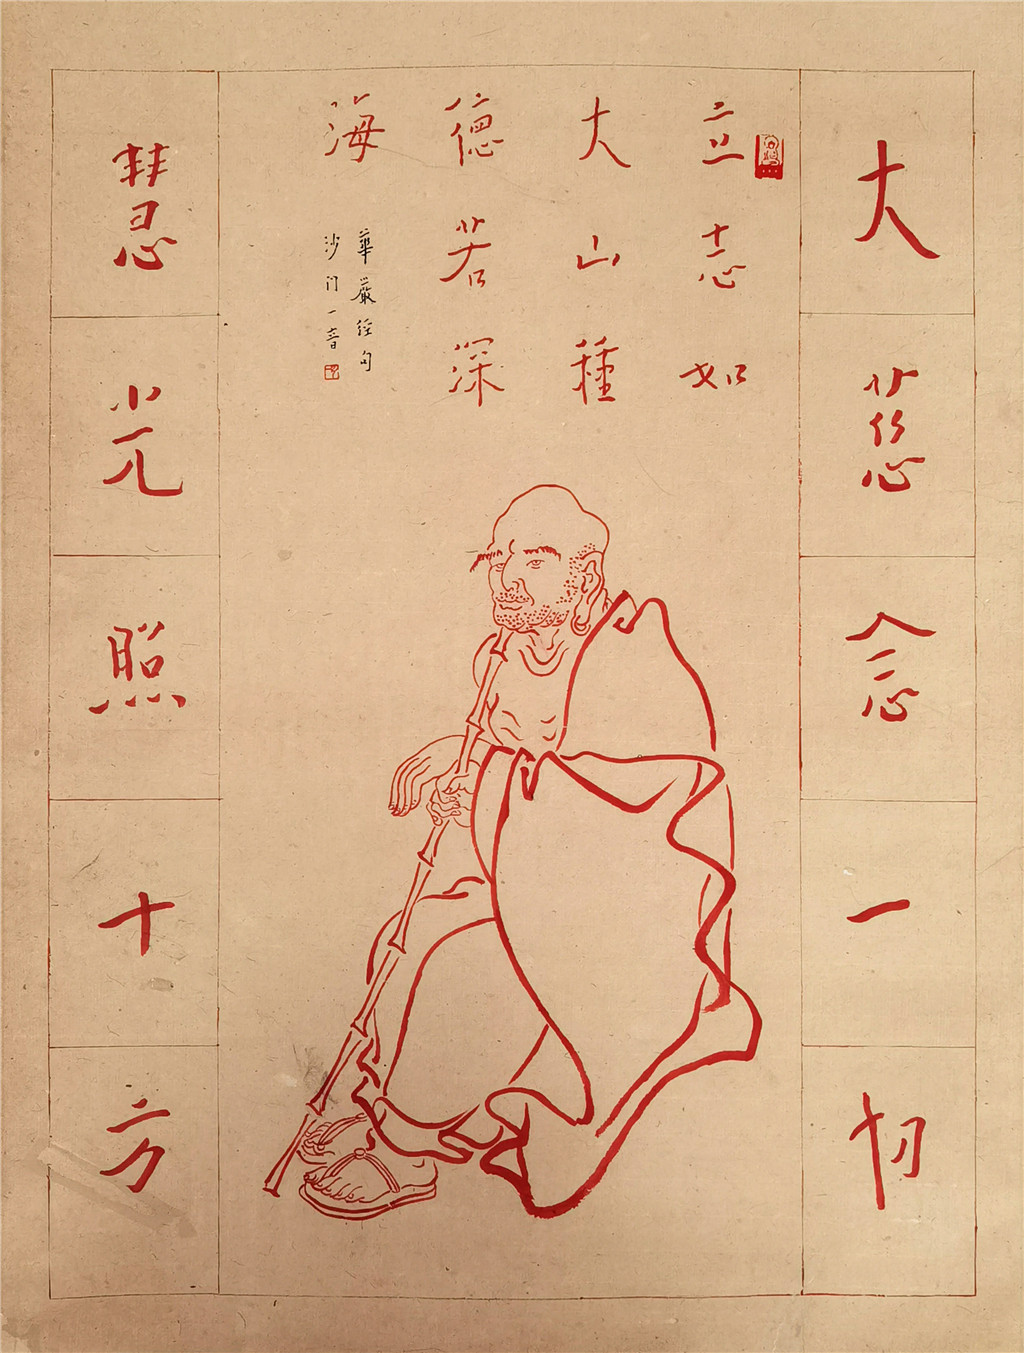 大慈念一切
立志如
大山種
德若深
海
華嚴經句
沙门一音
慧光照十方